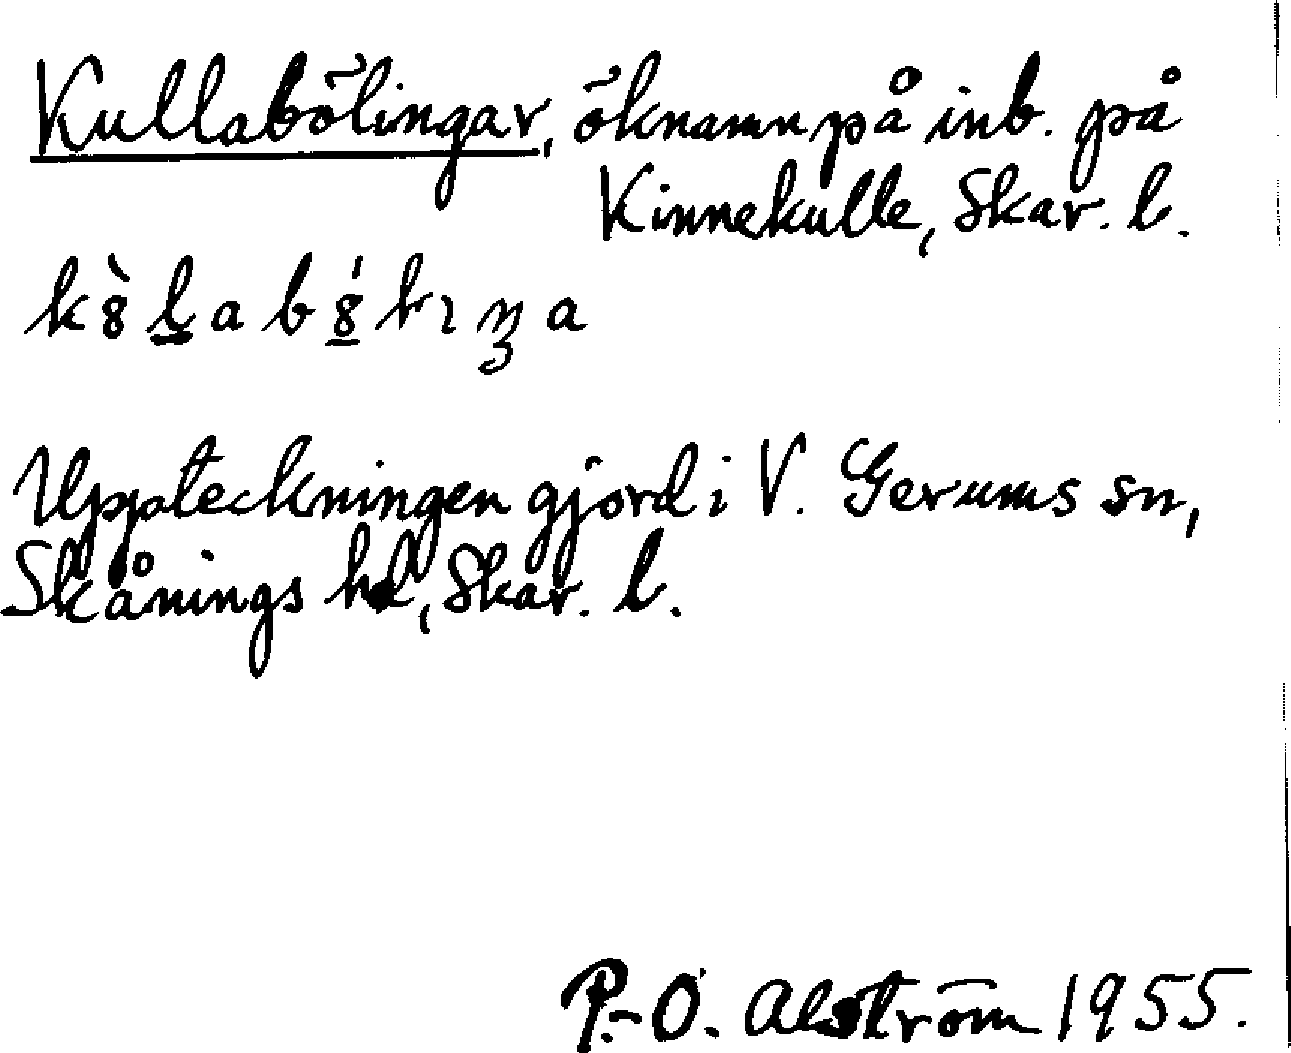 Kullabölingar, öknamn på inb. på
Kinnekulle, Skar. l.
Uppteckningen gjord i V. Gerums sn,
Skånings hd, Skar. l.
P.-O. Alström 1955.